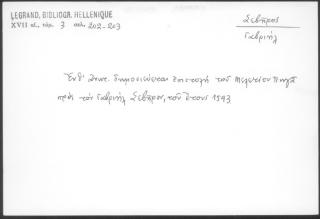 LEGRAND, BIBLIOGR. HELLENIQUE
XVII αἰ., τόμ. 3 σελ. 202-203
Σεβῆρος
Γαβριήλ
Ἐνθ' ἀνωτ. δημοσιεύεται ἐπιστολὴ τοῦ Μελετίου Πηγᾶ
πρὸς τὸν Γαβριὴλ Σεβῆρον, τοῦ ἔτους 1593